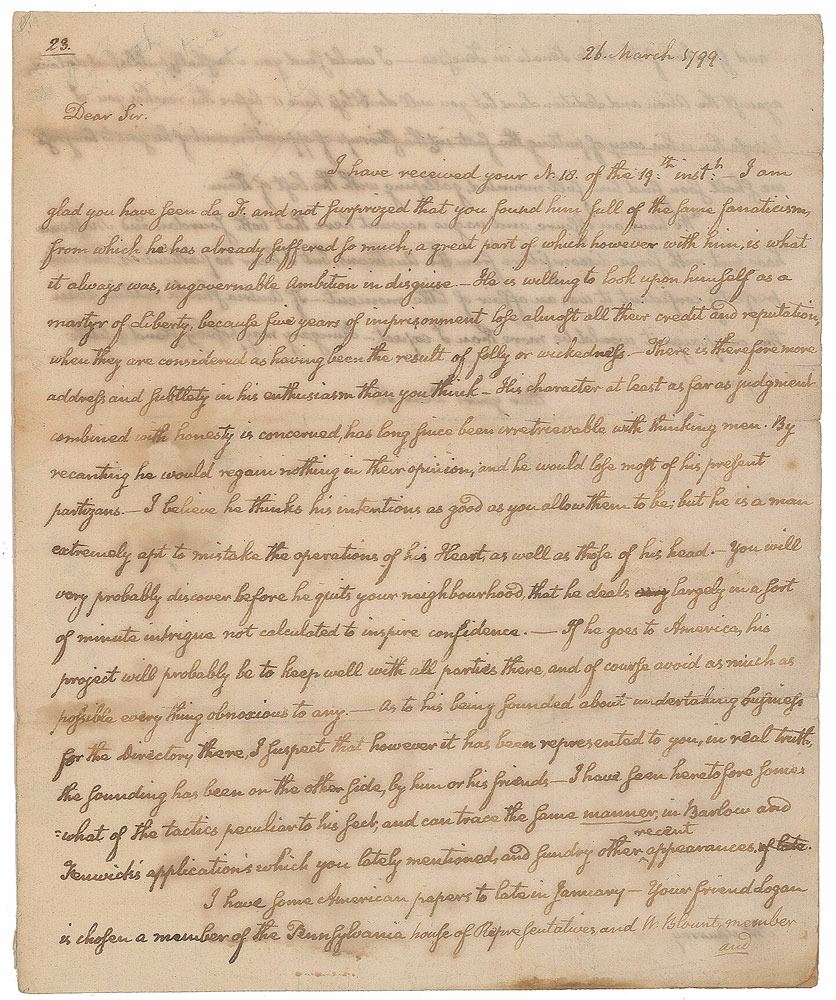 23.
26. March 1799.
Dear Sir.
I have received your N. 18. of the 19.th inst.t — I am
glad you have seen la F. and not surprized that you found him full of the same fanaticism,
from which he has already suffered so much, a great part of which however with him, is what
it always was, ungovernable Ambition in disguise — He is willing to look upon himself as a
martyr of Liberty, because five years of imprisonment lose almost all their credit and reputation,
when they are considered as having been the result of folly or wickedness. — There is therefore more
address and subtlety in his enthusiasm than you think — His character at least as far as judgment
combined with honesty is concerned, has long since been irretrievable with thinking men. By
recanting he would regain nothing in their opinion, and he would lose most of his present
partizans. — I believe he thinks his intentions as good as you allow them to be; but he is a man
extremely apt to mistake the operations of his Heart, as well as those of his head. — You will
very probably discover before he quits your neighbourhood, that he deals very largely in a sort
of minute intrigue not calculated to inspire confidence. — If he goes to America, his
project will probably be to keep well with all parties there, and of course avoid as much as
possible every thing obnoxious to any. — As to his being sounded about undertaking business
for the Directory there, I suspect that however it has been represented to you, in real truth,
the sounding has been on the other side, by him or his friends — I have seen heretofore some=
=what of the tactics peculiar to his sect, and can trace the same manner, in Barlow and
Fenwick's applications which you lately mentioned, and sundry other recent appearances, of late.
I have some American papers to late in January — Your friend Logan
is chosen a member of the Pennsylvania house of Representatives, and W. Blount, member
and